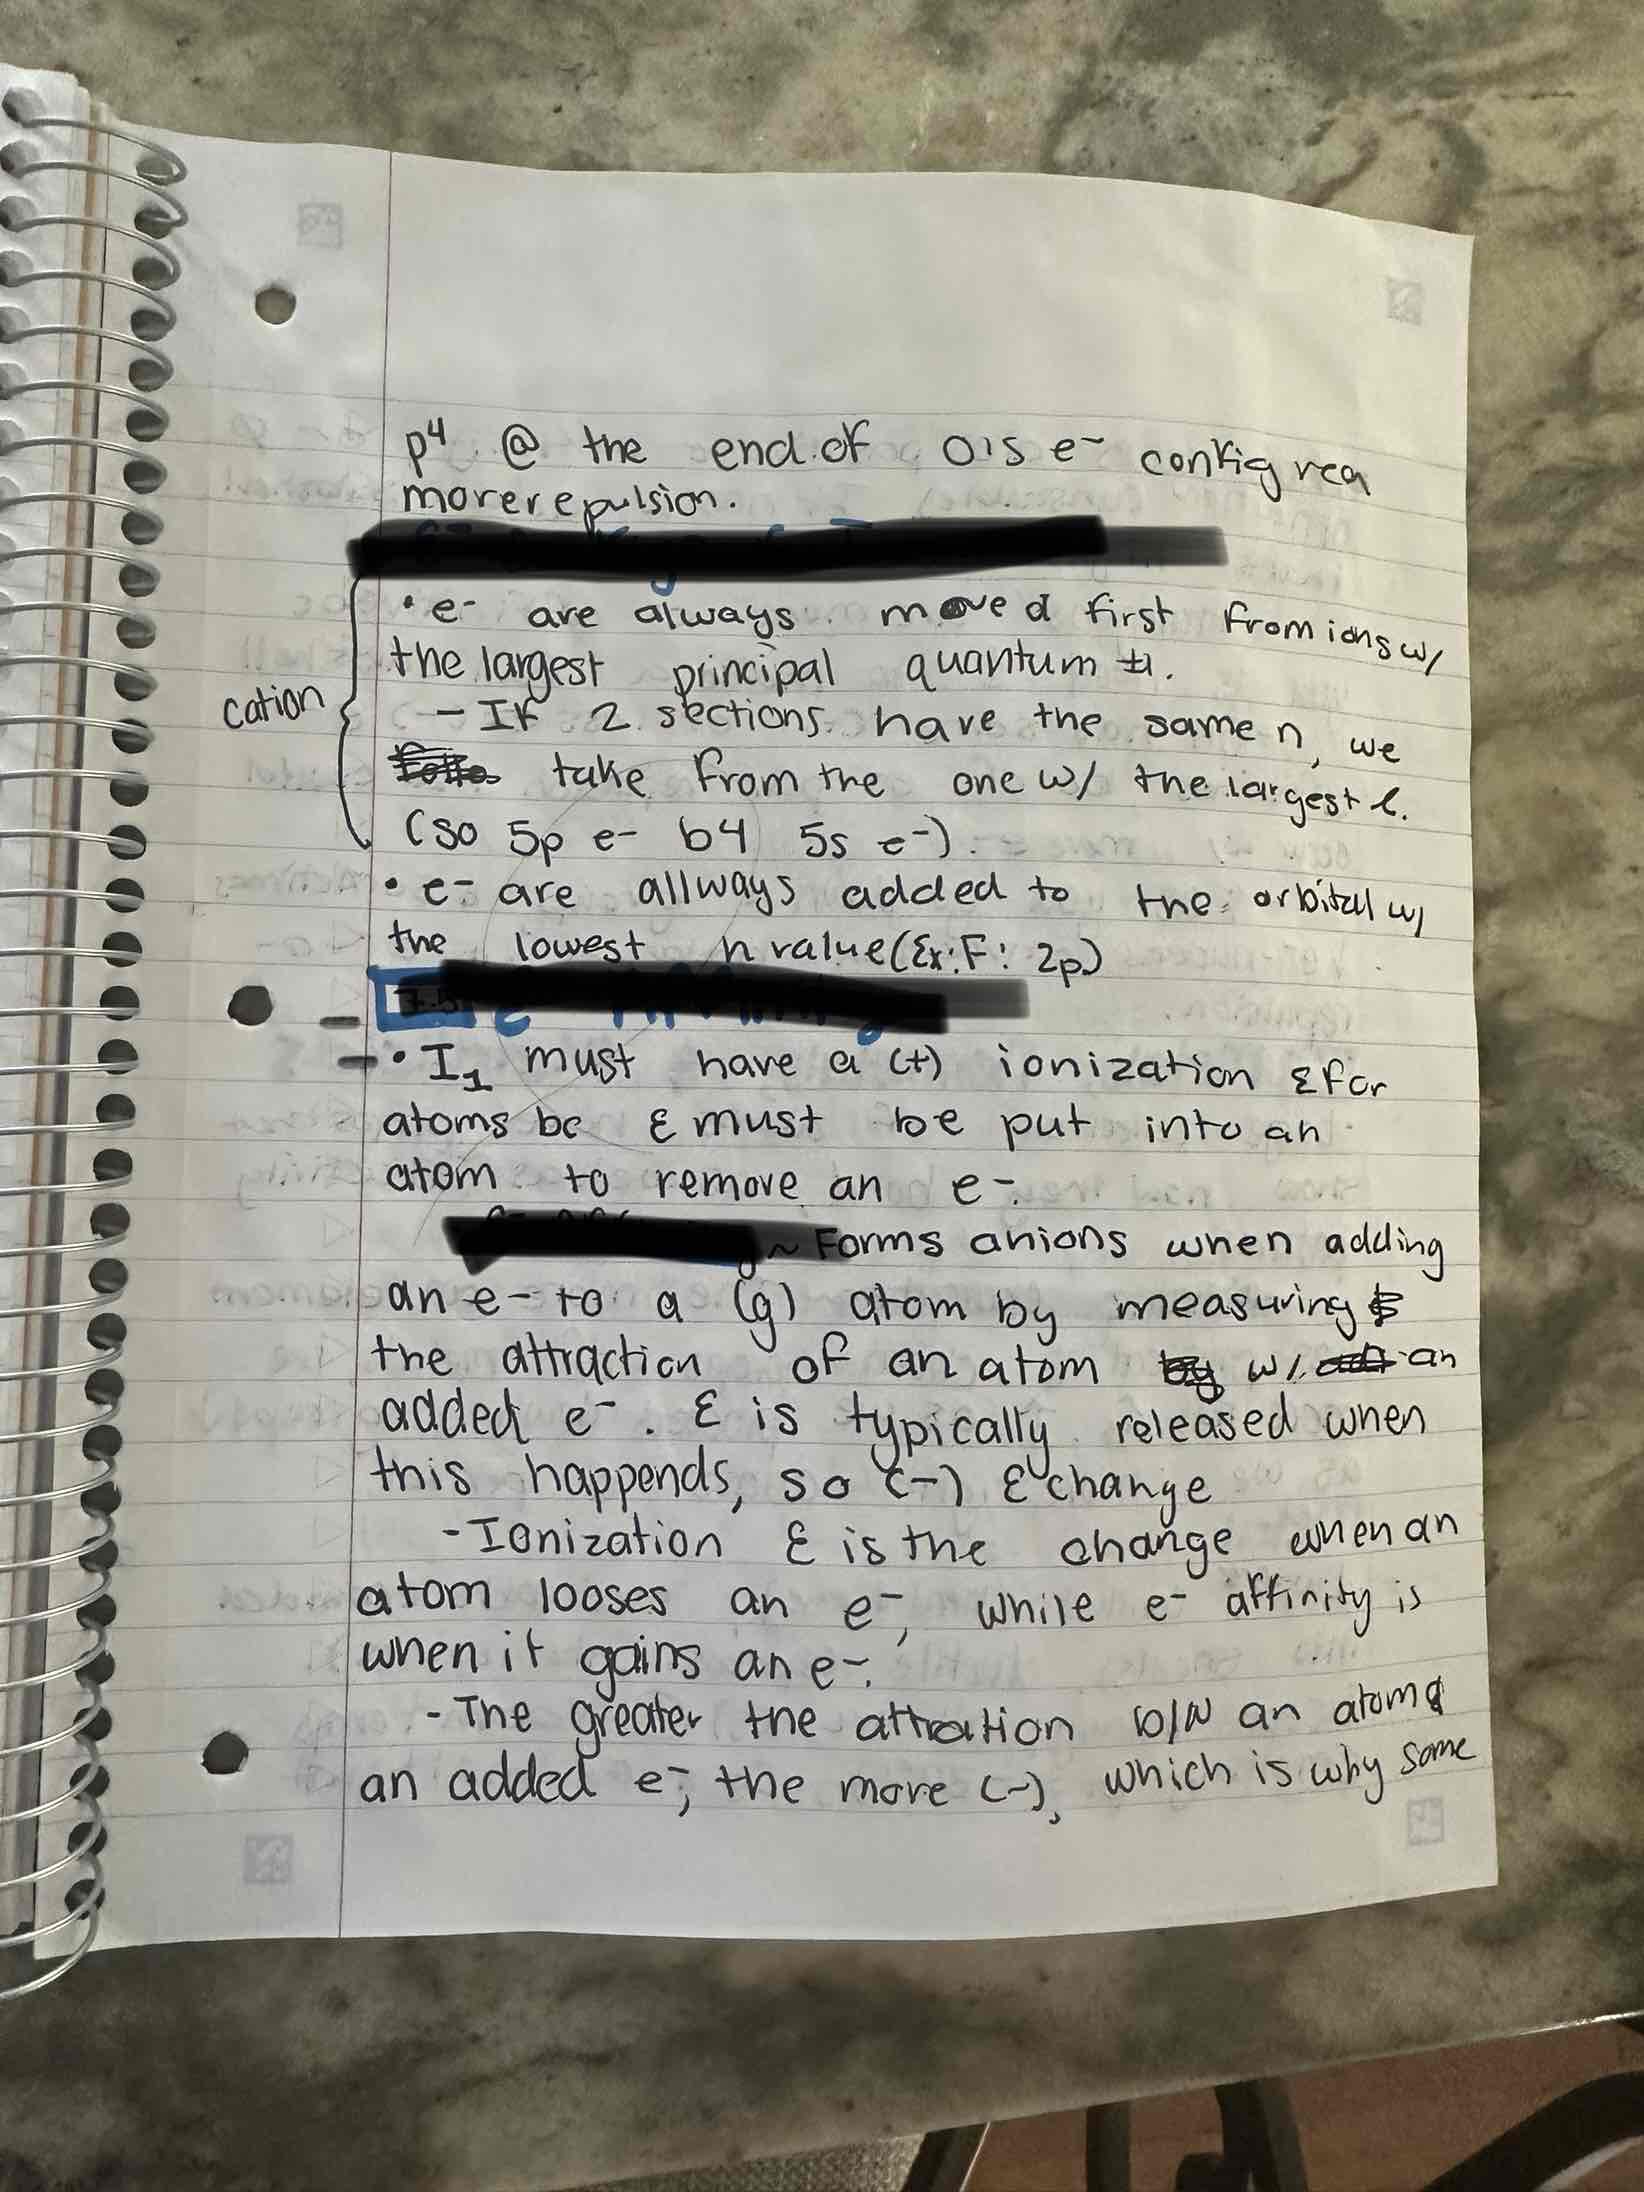 p⁴ @ the end of O's e- config rea
more repulsion.
• e- are always moved first from ions w/
the largest principal quantum #.
cation
- If 2 sections have the same n, we
take from the one w/ the largest ℓ.
(so 5p e- b4 5s e-).
• e- are allways added to the orbital w/
the lowest n value (Ex: F: 2p)
• I₁ must have a (+) ionization E for
atoms bc E must be put into an
atom to remove an e-.
~ Forms anions when adding
an e- to a (g) atom by measuring
the attraction of an atom w/ an
added e-. E is typically released when
this happends, so (-) E change
- Ionization E is the change when an
atom looses an e-, while e- affinity is
when it gains an e-.
- The greater the attration b/w an atom &
an added e-, the more (-), which is why some